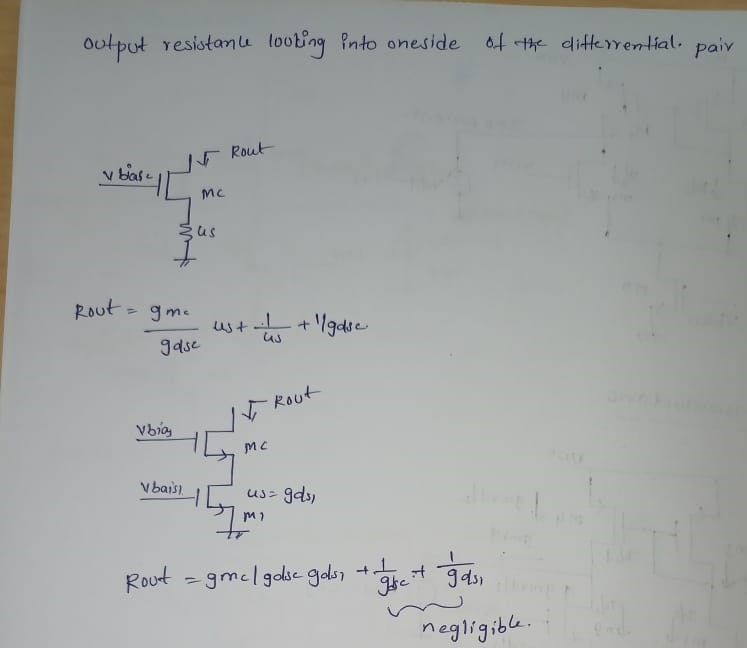 output resistance looking into oneside of the differrential. pair
Rout
v biasc
mc
us
Rout = gmc/gdsc us + 1/us + 1/gdsc
Rout
Vbias
mc
Vbais1
us = gds1
m1
Rout = gmc/gdsc gds1 + 1/gdsc + 1/gds1
negligible.